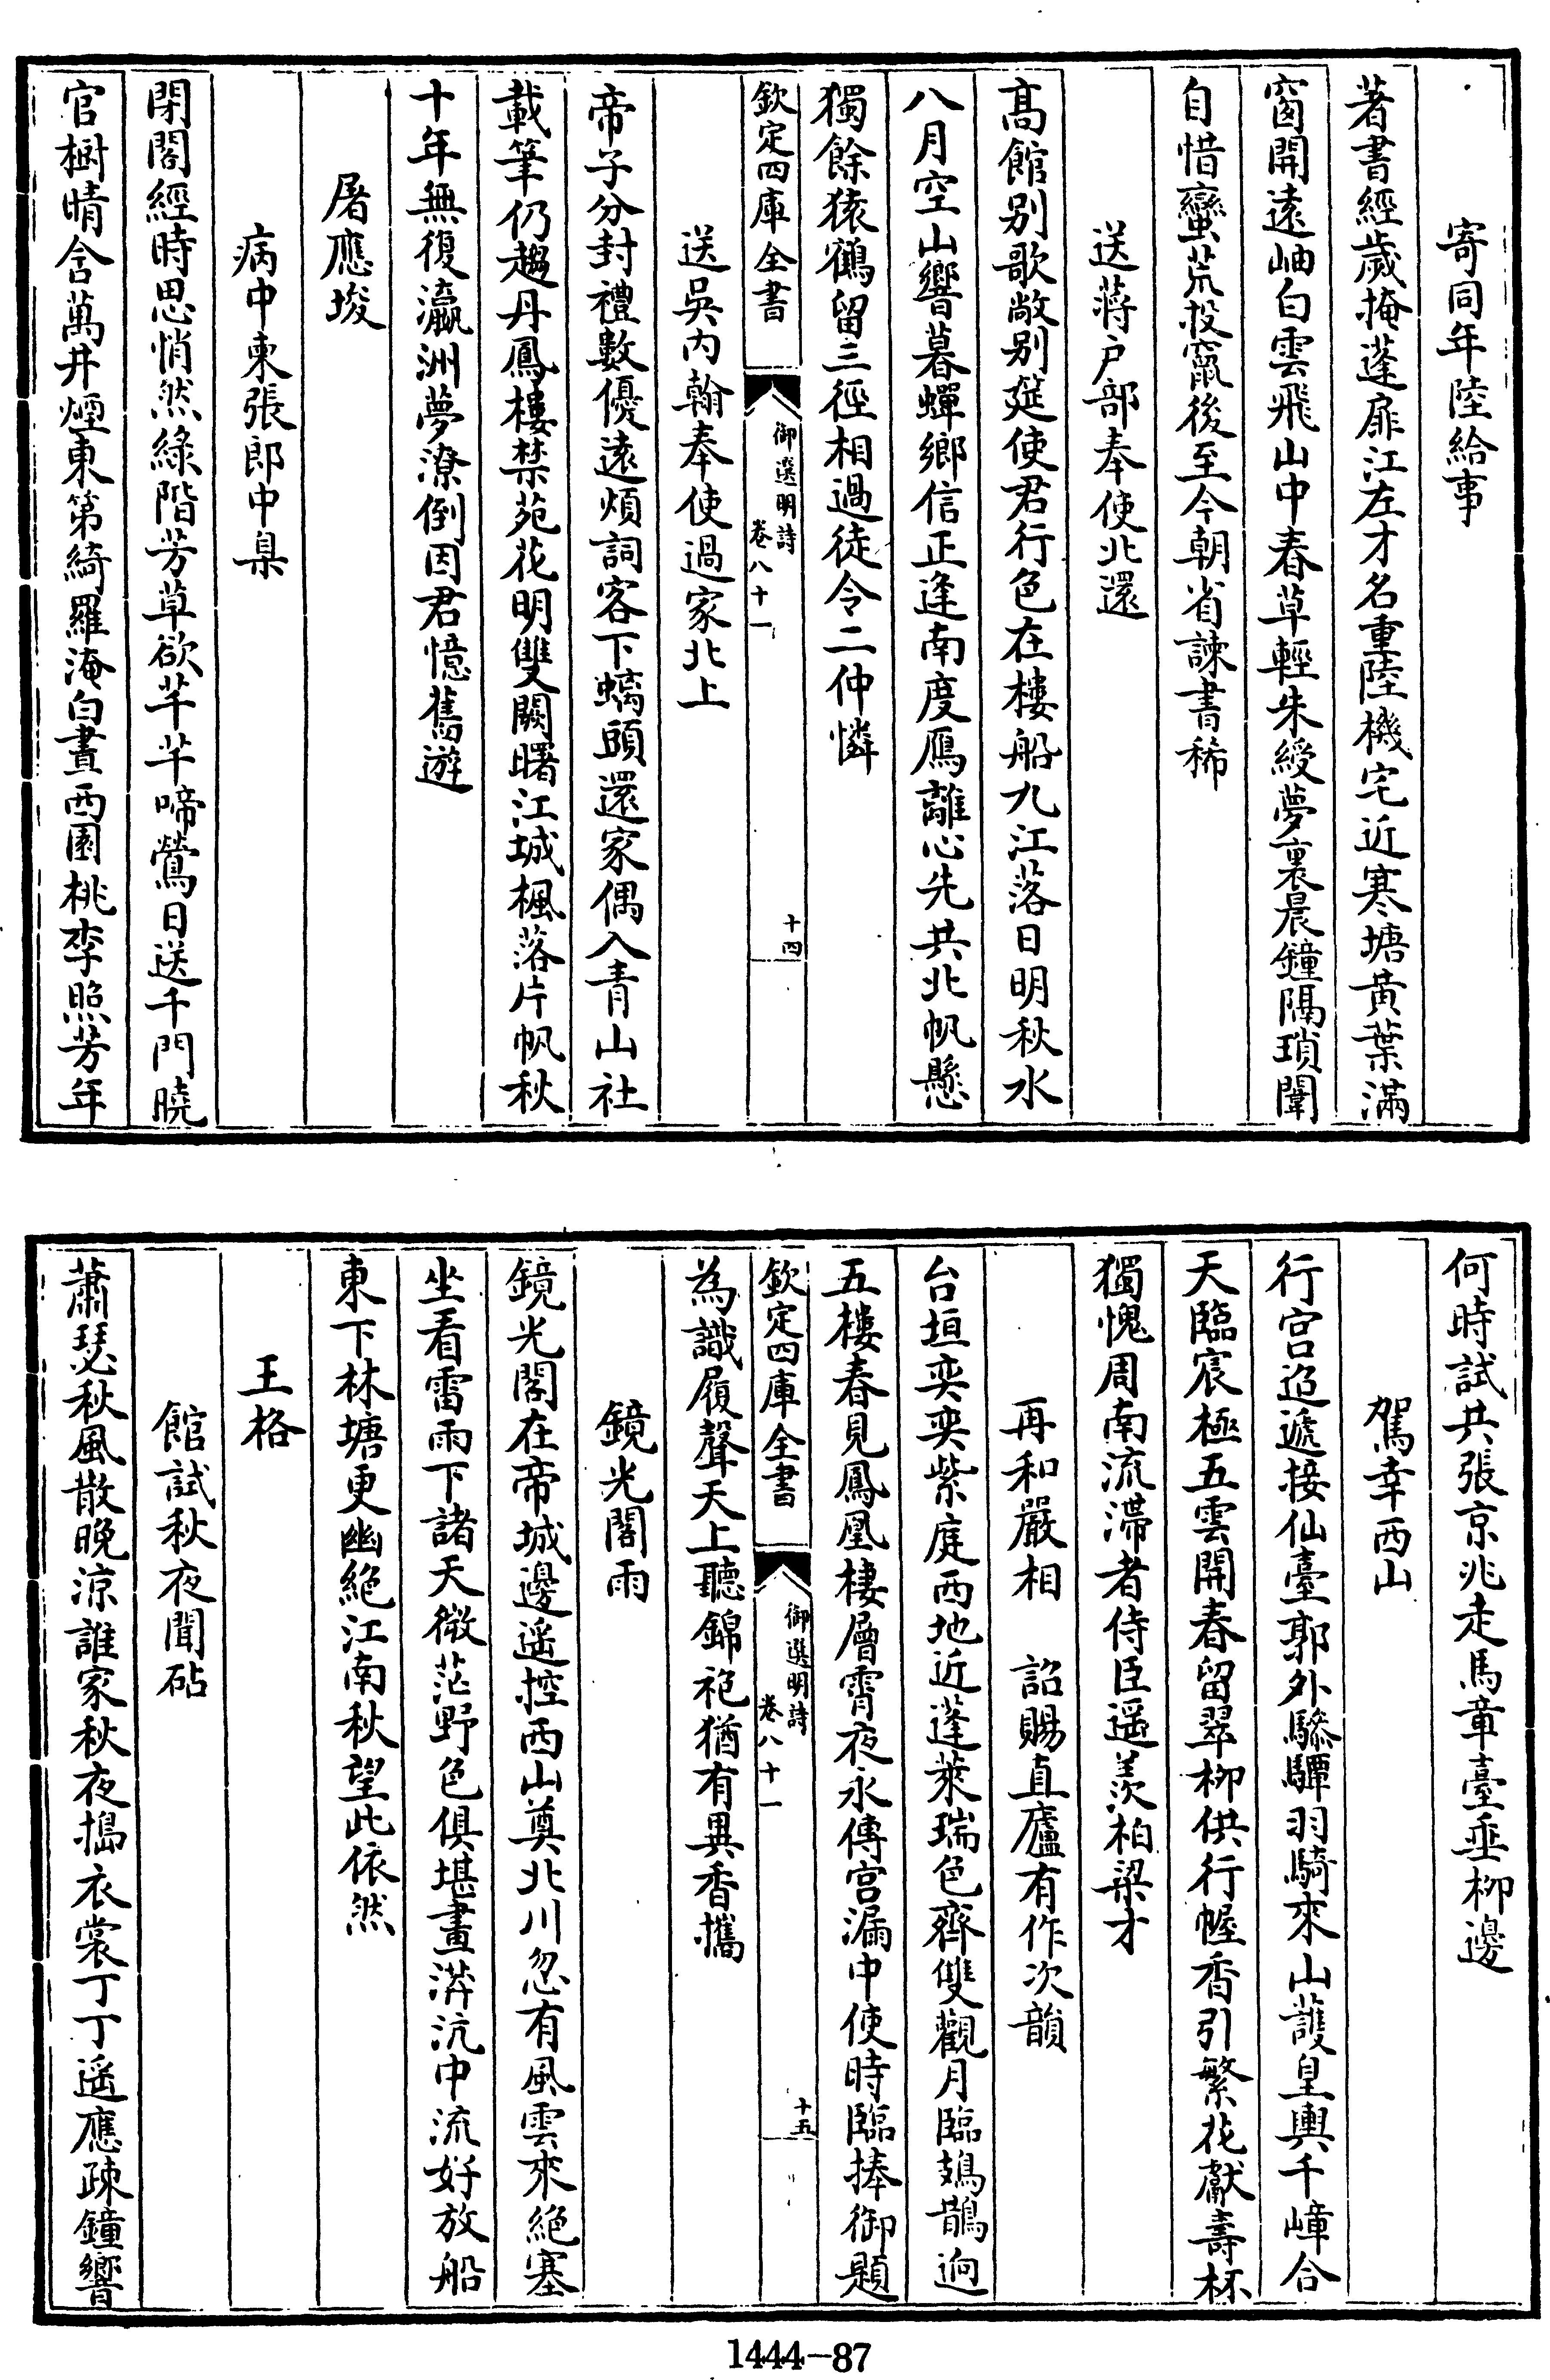 寄同年陸給事
著書經歲掩蓬扉江左才名重陸機宅近寒塘黄葉滿
窗開遠岫白雲飛山中春草輕朱綬夢裏晨鐘隔瑣闈
自惜蠻荒投竄後至今朝省諫書稀
送蔣户部奉使北還
高館别歌敞别筵使君行色在樓船九江落日明秋水
八月空山響暮蟬鄉信正逢南度鴈離心先共北帆懸
獨餘猿鶴留三徑相過徒令二仲憐
欽定四庫全書
御選明詩
卷八十一
十四
送吳内翰奉使過家北上
帝子分封禮數優遠煩詞客下螭頭還家偶入青山社
載筆仍趨丹鳳樓禁苑花明雙闕曙江城楓落片帆秋
十年無復瀛洲夢潦倒因君憶舊遊
屠應埈
病中柬張郎中臬
閉閣經時思悄然綠階芳草欲芊芊啼鶯日送千門曉
官樹晴含萬井煙東第綺羅淹白晝西園桃李照芳年
何時試共張京兆走馬章臺垂柳邊
駕幸西山
行宫迢遞接仙臺郭外驂驔羽騎來山護皇輿千嶂合
天臨宸極五雲開春留翠柳供行幄香引繁花獻壽杯
獨愧周南流滯者侍臣遥羨柏梁才
再和嚴相 詔賜直廬有作次韻
台垣奕奕紫庭西地近蓬萊瑞色齊雙觀月臨鳷鵲迥
五樓春見鳳凰棲層霄夜永傳宫漏中使時臨捧御題
為識履聲天上聽錦袍猶有異香攜
欽定四庫全書
御選明詩
卷八十一
十五
鏡光閣雨
鏡光閣在帝城邊遥控西山奠北川忽有風雲來絕塞
坐看雷雨下諸天微茫野色俱堪畫漭沆中流好放船
東下林塘更幽絕江南秋望此依然
王格
館試秋夜聞砧
蕭瑟秋風散晚涼誰家秋夜搗衣裳丁丁遥應疎鐘響
1444-87